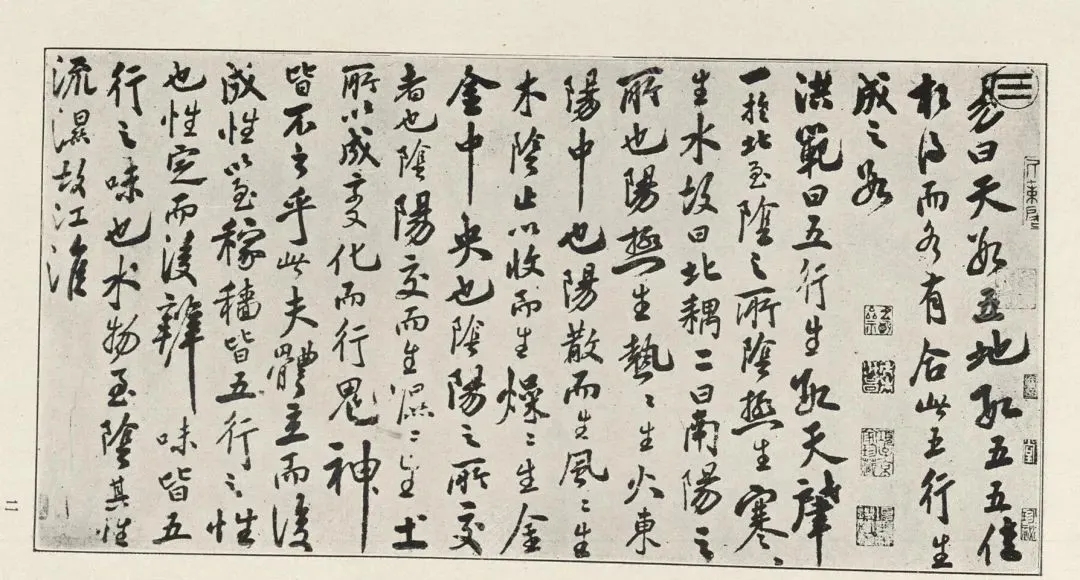 易曰天數五地數五五位
相得而各有合此五行生
成之數
洪範曰五行生數天肇
一於北至陰之所陰極生寒〻
生水故曰北耦二曰南陽之
所也陽極生熱〻生火東
陽中也陽散而生風〻生
木陰止以收而生燥〻生金
金中央也陰陽之所交
者也陰陽交而生濕〻生土
所以成變化而行鬼神
皆不之乎此夫體立而後
成性以至稼穡皆五行之性
也性定而後辨味皆五
行之味也水物至陰其性
流濕故江淮
二